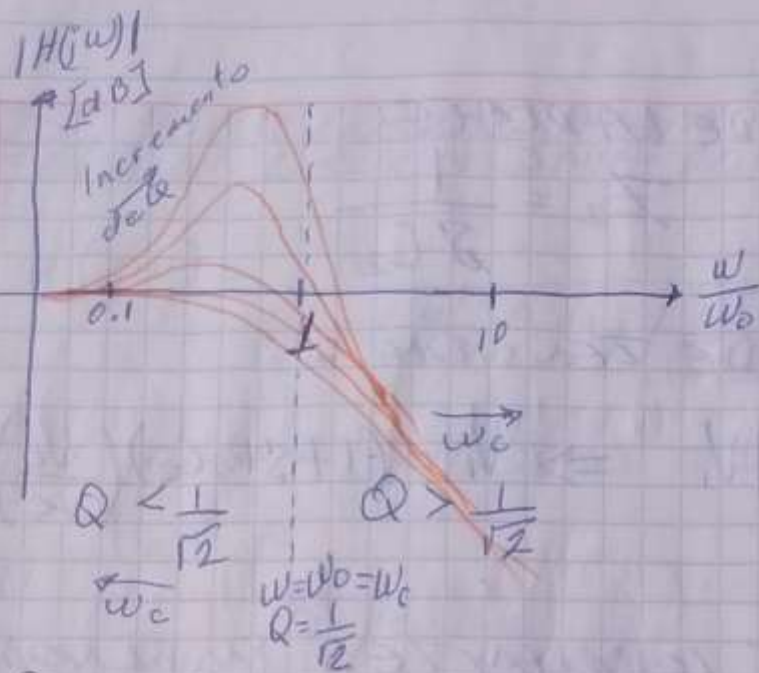 |H(jω)|
[dB]
Incremento
de Q
0.1
1
10
ω/ω₀
ωc
Q < 1/√2
Q > 1/√2
ωc
ω=ω₀=ωc
Q=1/√2